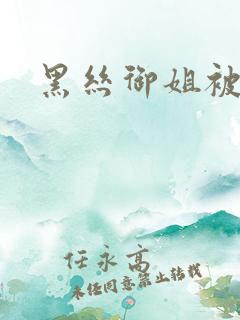 黑丝御姐被
任永高
未经同意禁止转载